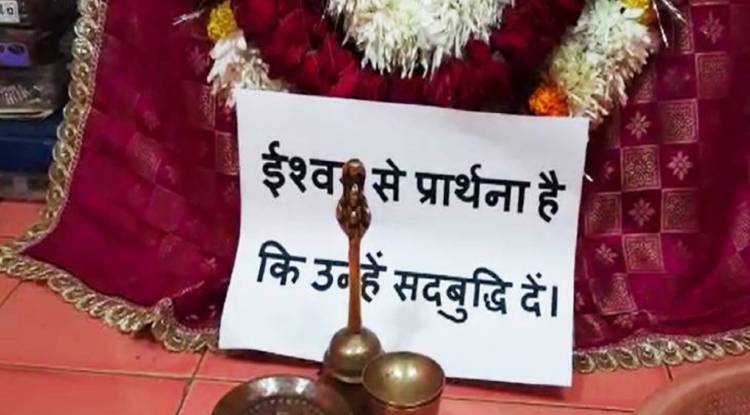 ईश्वर से प्रार्थना है
कि उन्हें सदबुद्धि दें।